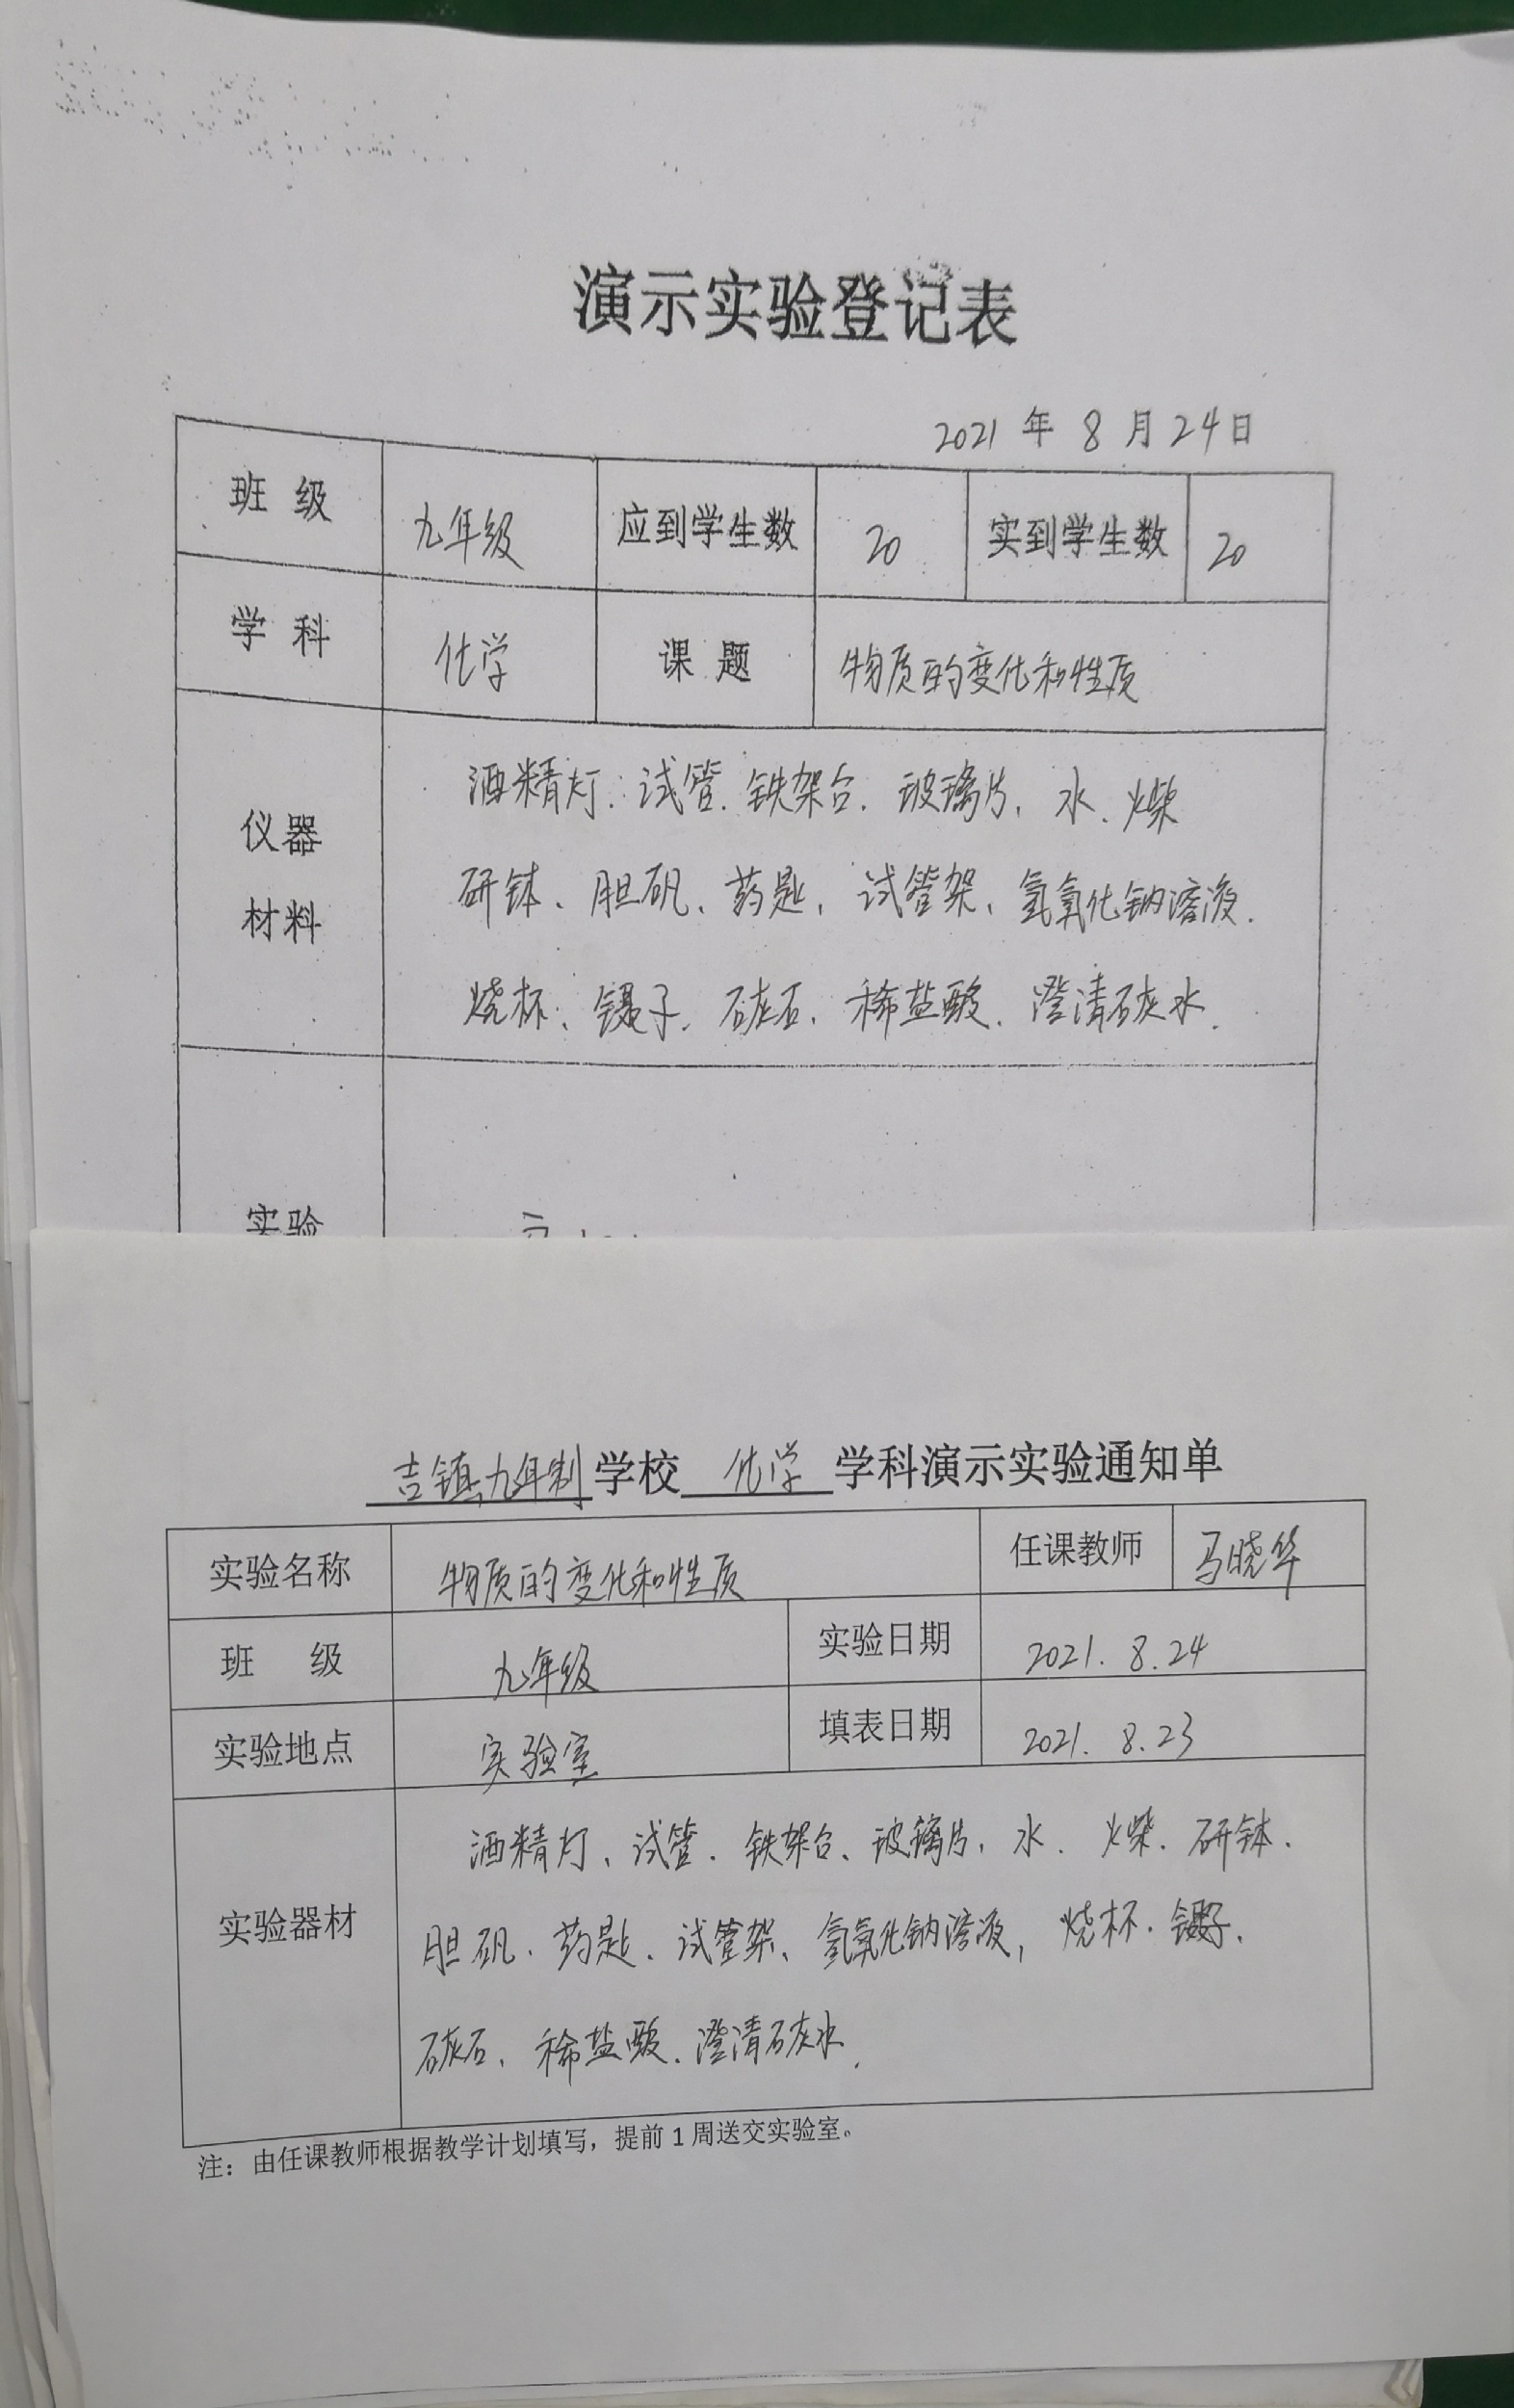 演示实验登记表
2021 年 8 月 24 日
班 级 九年级 应到学生数 20 实到学生数 20
学 科 化学 课 题 物质的变化和性质
仪器
材料
酒精灯、试管、铁架台、玻璃片、水、火柴
研钵、胆矾、药匙、试管架、氢氧化钠溶液、
烧杯、镊子、石灰石、稀盐酸、澄清石灰水、
实验
吉镇九年制学校 化学 学科演示实验通知单
实验名称 物质的变化和性质 任课教师 马晓华
班 级 九年级 实验日期 2021. 8.24
实验地点 实验室 填表日期 2021. 8.23
实验器材
酒精灯、试管、铁架台、玻璃片、水、火柴、研钵、
胆矾、药匙、试管架、氢氧化钠溶液, 烧杯、镊子、
石灰石、稀盐酸、澄清石灰水、
注：由任课教师根据教学计划填写，提前 1 周送交实验室。